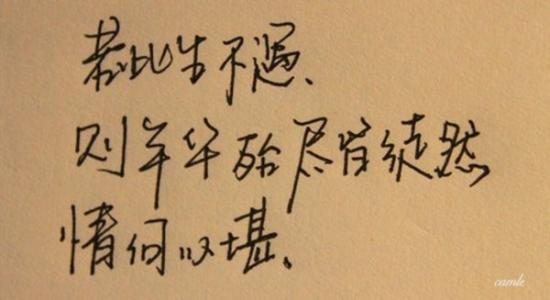 若此生不遇、
则年华殆尽皆徒然
情何以堪、
camle